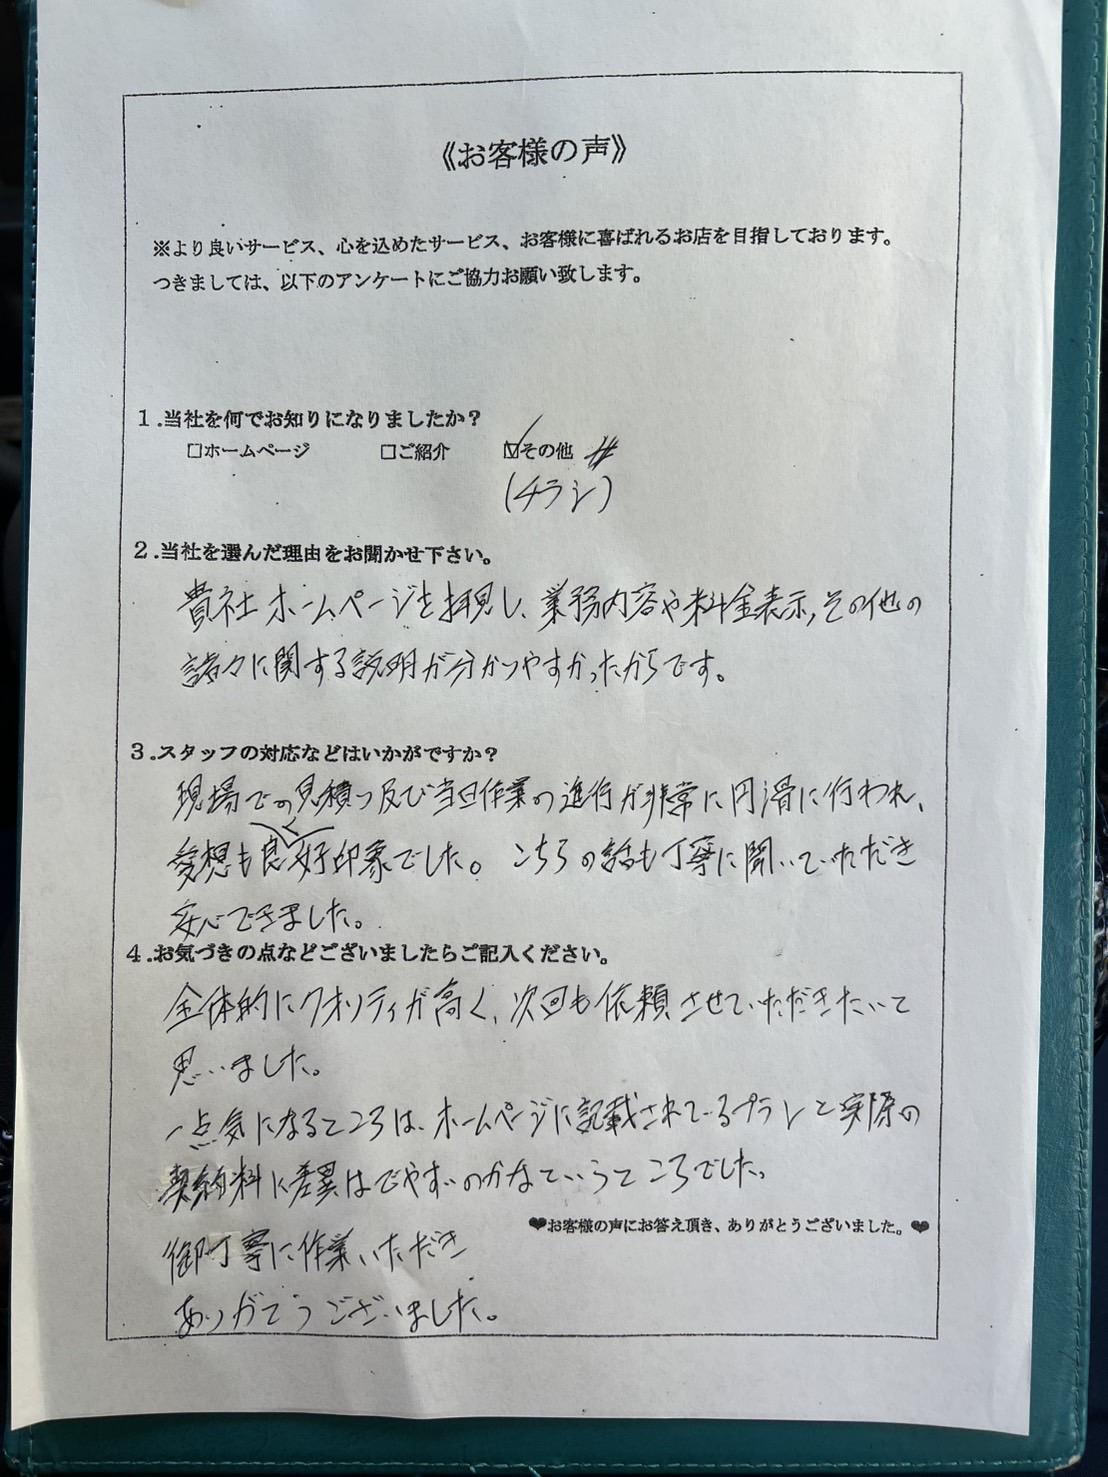 《お客様の声》
※より良いサービス、心を込めたサービス、お客様に喜ばれるお店を目指しております。
つきましては、以下のアンケートにご協力お願い致します。
1.当社を何でお知りになりましたか?
□ホームページ □ご紹介 ☑その他
(チラシ)
2.当社を選んだ理由をお聞かせ下さい。
貴社ホームページを拝見し、業務内容や料金表示,その他の
諸々に関する説明が分かりやすかったからです。
3.スタッフの対応などはいかがですか?
現場での見積り及び当日作業の進行が非常に円滑に行われ、
愛想も良く好印象でした。こちらの話も丁寧に聞いていただき
安心できました。
4.お気づきの点などございましたらご記入ください。
全体的にクオリティが高く、次回も依頼させていただきたいと
思いました。
一点気になるところは、ホームページに記載されているプランと実際の
契約料に差異はでやすいのかなというところでした。
♥お客様の声にお答え頂き、ありがとうございました。♥
御丁寧に作業いただき
ありがとうございました。